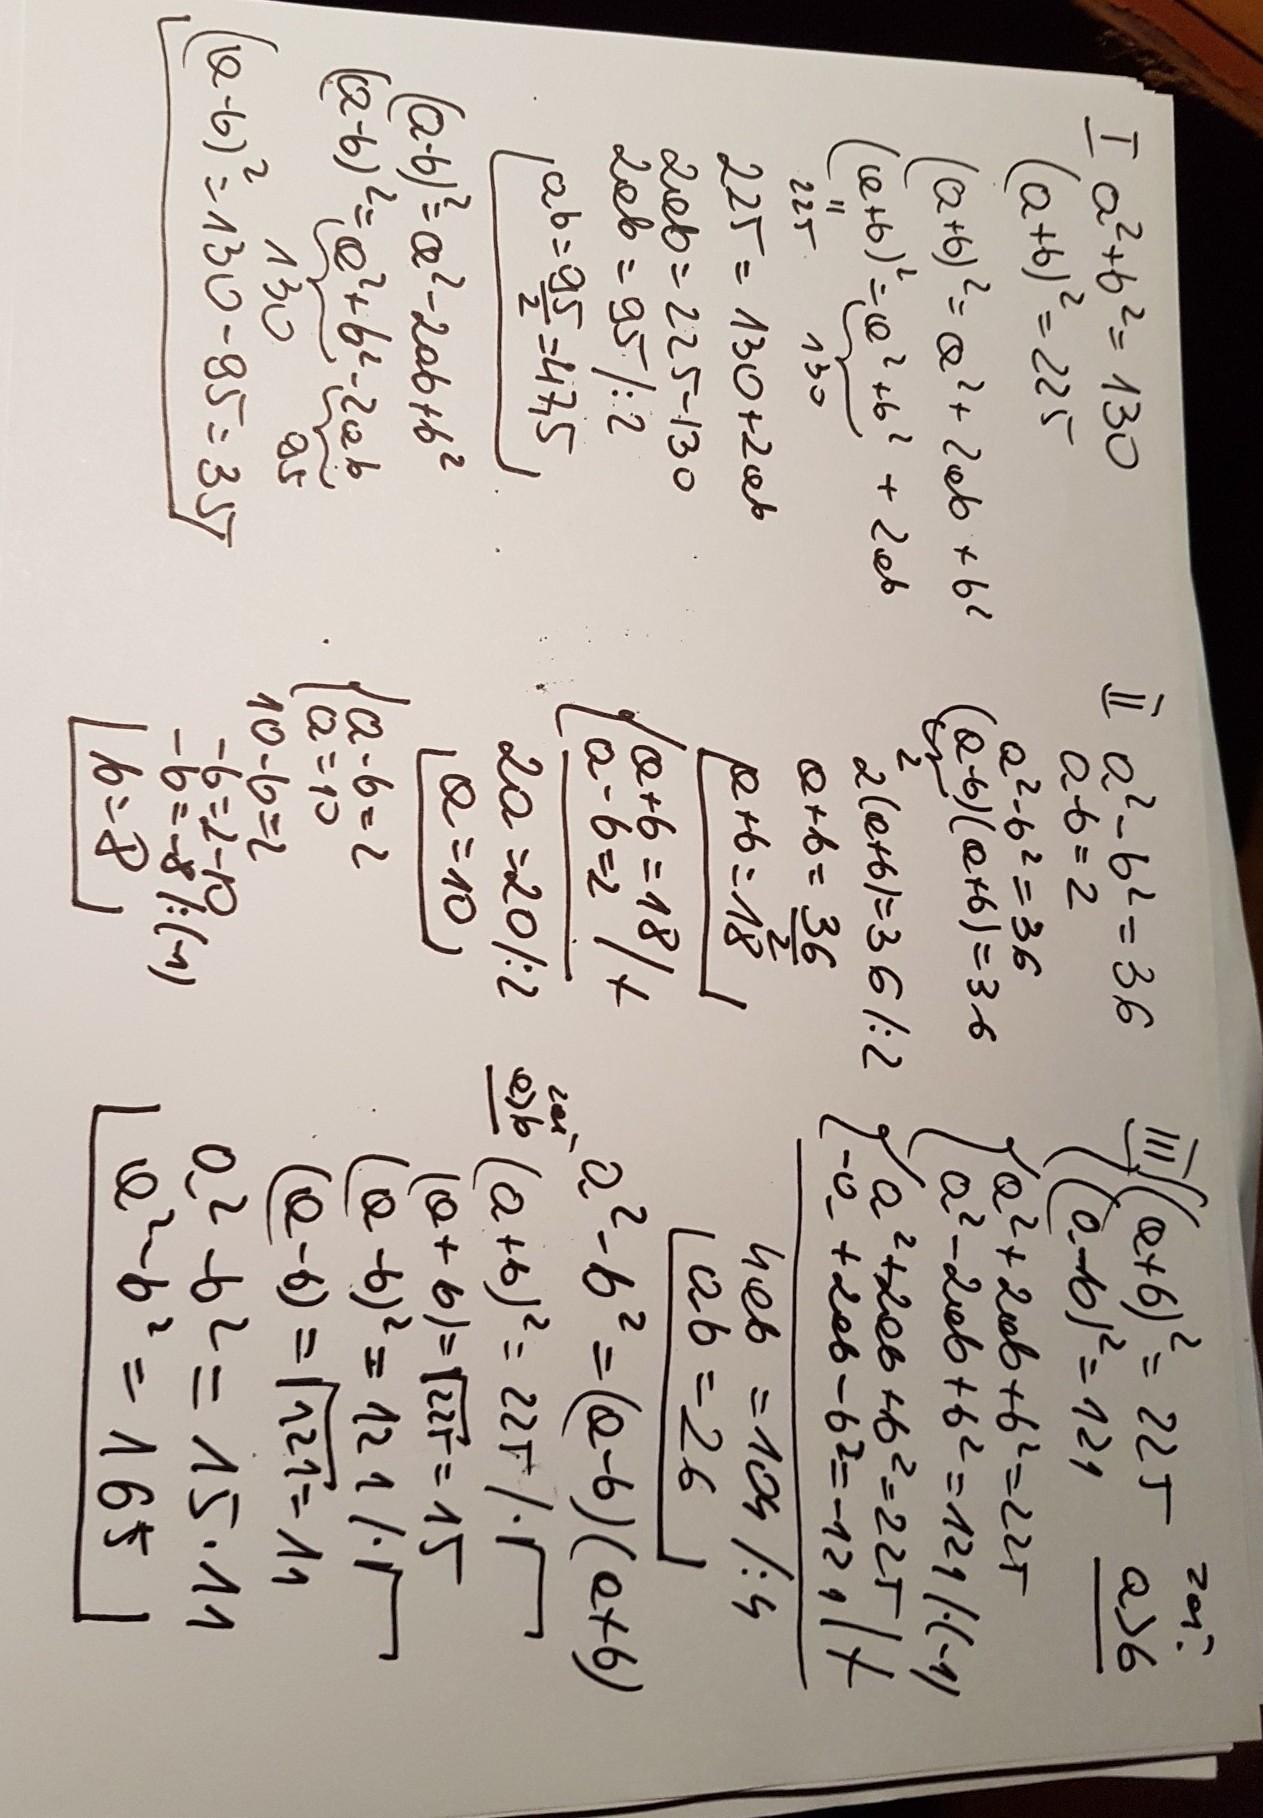 I a²+b²=130
(a+b)²=225
(a+b)²=a²+2ab+b²
(a+b)²=a²+b²+2ab
" 130
225
225=130+2ab
2ab=225-130
2ab=95/:2
ab=95/2=47,5
(a-b)²=a²-2ab+b²
(a-b)²=a²+b²-2ab
130 95
(a-b)²=130-95=35
II a²-b²=36
a-b=2
a²-b²=36
(a-b)(a+b)=36
2
2(a+b)=36/:2
a+b=36/2
a+b=18
a+b=18/+
a-b=2
2a=20/:2
a=10
a-b=2
a=10
10-b=2
-b=2-10
-b=-8/:(-1)
b=8
III (a+b)²=225 zał:
(a-b)²=121 a>b
a²+2ab+b²=225
a²-2ab+b²=121/·(-1)
a²+2ab+b²=225/+
-a+2ab-b²=-121
4ab=104/:4
ab=26
a²-b²=(a-b)(a+b)
zał.
a>b (a+b)²=225/·√
(a+b)=√225=15
(a-b)²=121/·√
(a-b)=√121=11
a²-b²=15·11
a²-b²=165